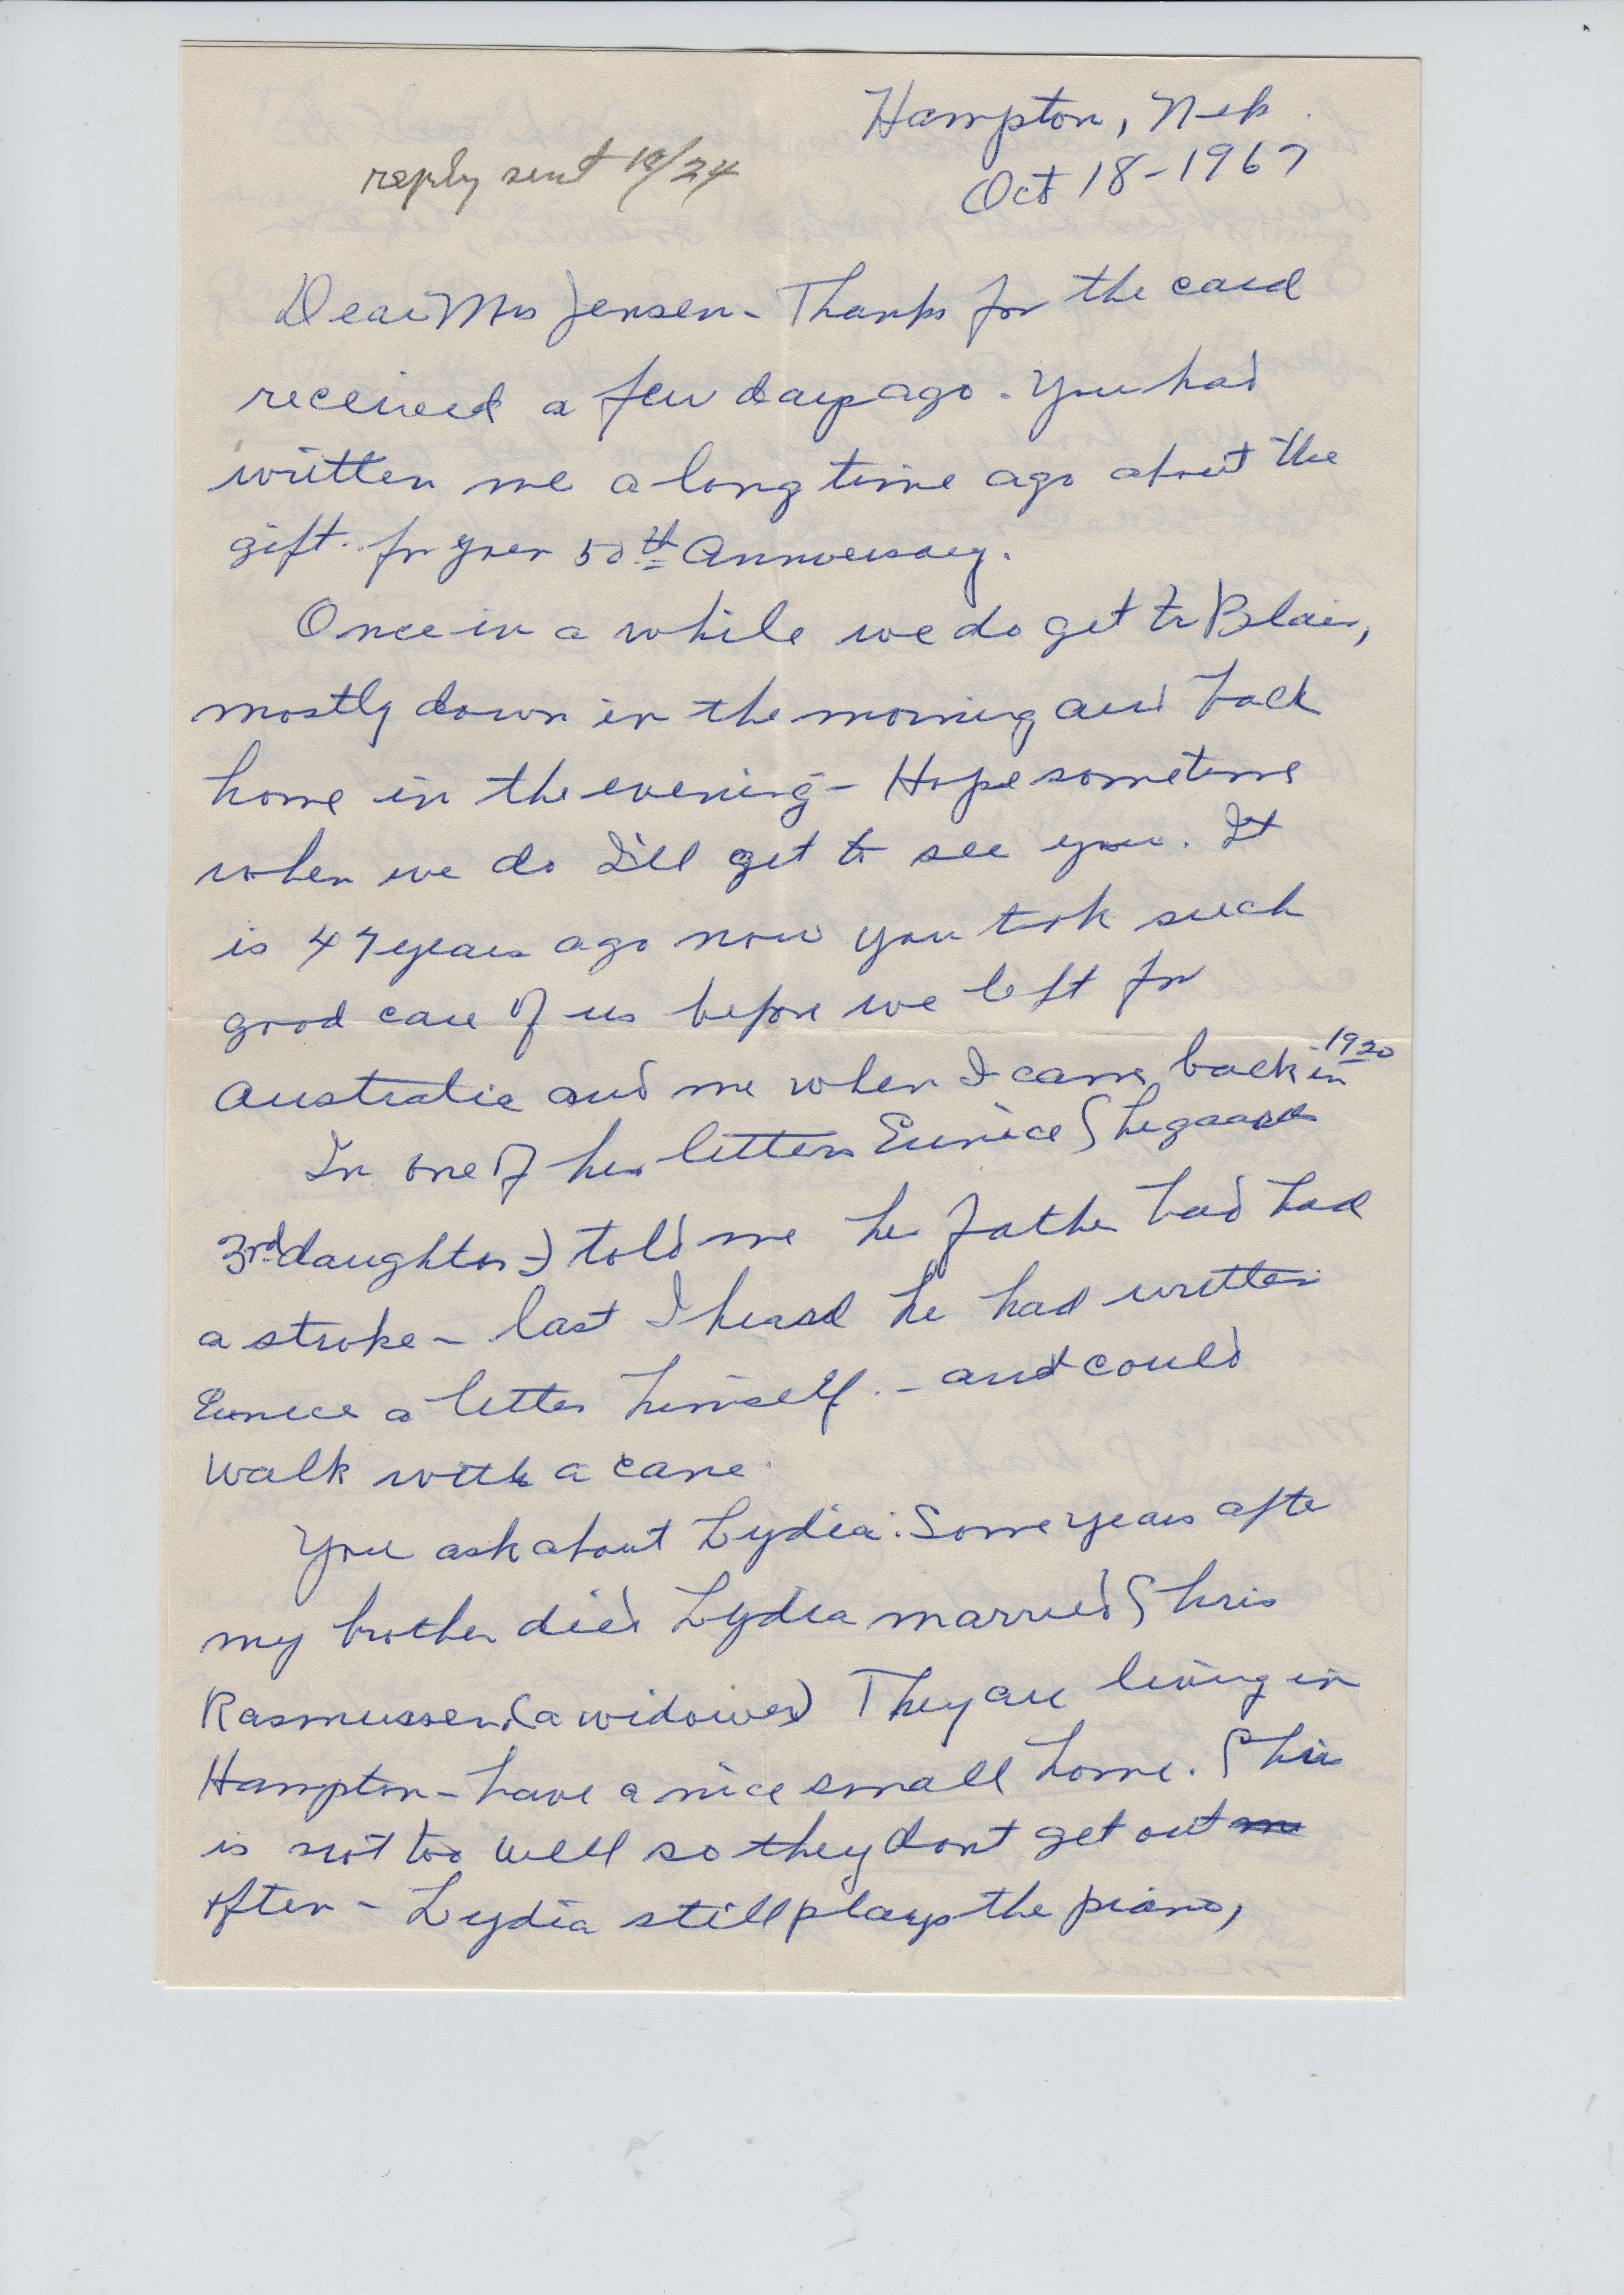 Hampton, Neb.
reply sent 10/24
Oct 18-1967
Dear Mrs Jensen - Thanks for the card
received a few days ago. You had
written me a long time ago about the
gift for your 50th Anniversary.
Once in a while we do get to Blair,
mostly down in the morning and back
home in the evening - Hope sometime
when we do I'll get to see you. It
is 47 years ago now you took such
good care of us before we left for
Australia and me when I came back in 1920
In one of her letters Eunice
3rd daughter) told me her father had had
a stroke - last I heard he had written
Eunice a letter himself. - and could
walk with a cane.
You ask about Lydia: Some years after
my brother died Lydia married Chris
Rasmussen (a widower) They are living in
Hampton - have a nice small home. Chris
is not too well so they dont get out
often - Lydia still plays the piano,